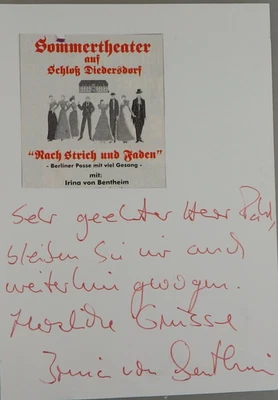 Sommertheater
auf
Schloß Diedersdorf
"Nach Strich und Faden"
- Berliner Posse mit viel Gesang -
mit:
Irina von Bentheim
Sehr geehrter Herr
bleiben Sie mir auch
weiterhin gewogen.
Herzliche Grüsse
Irina von Bentheim